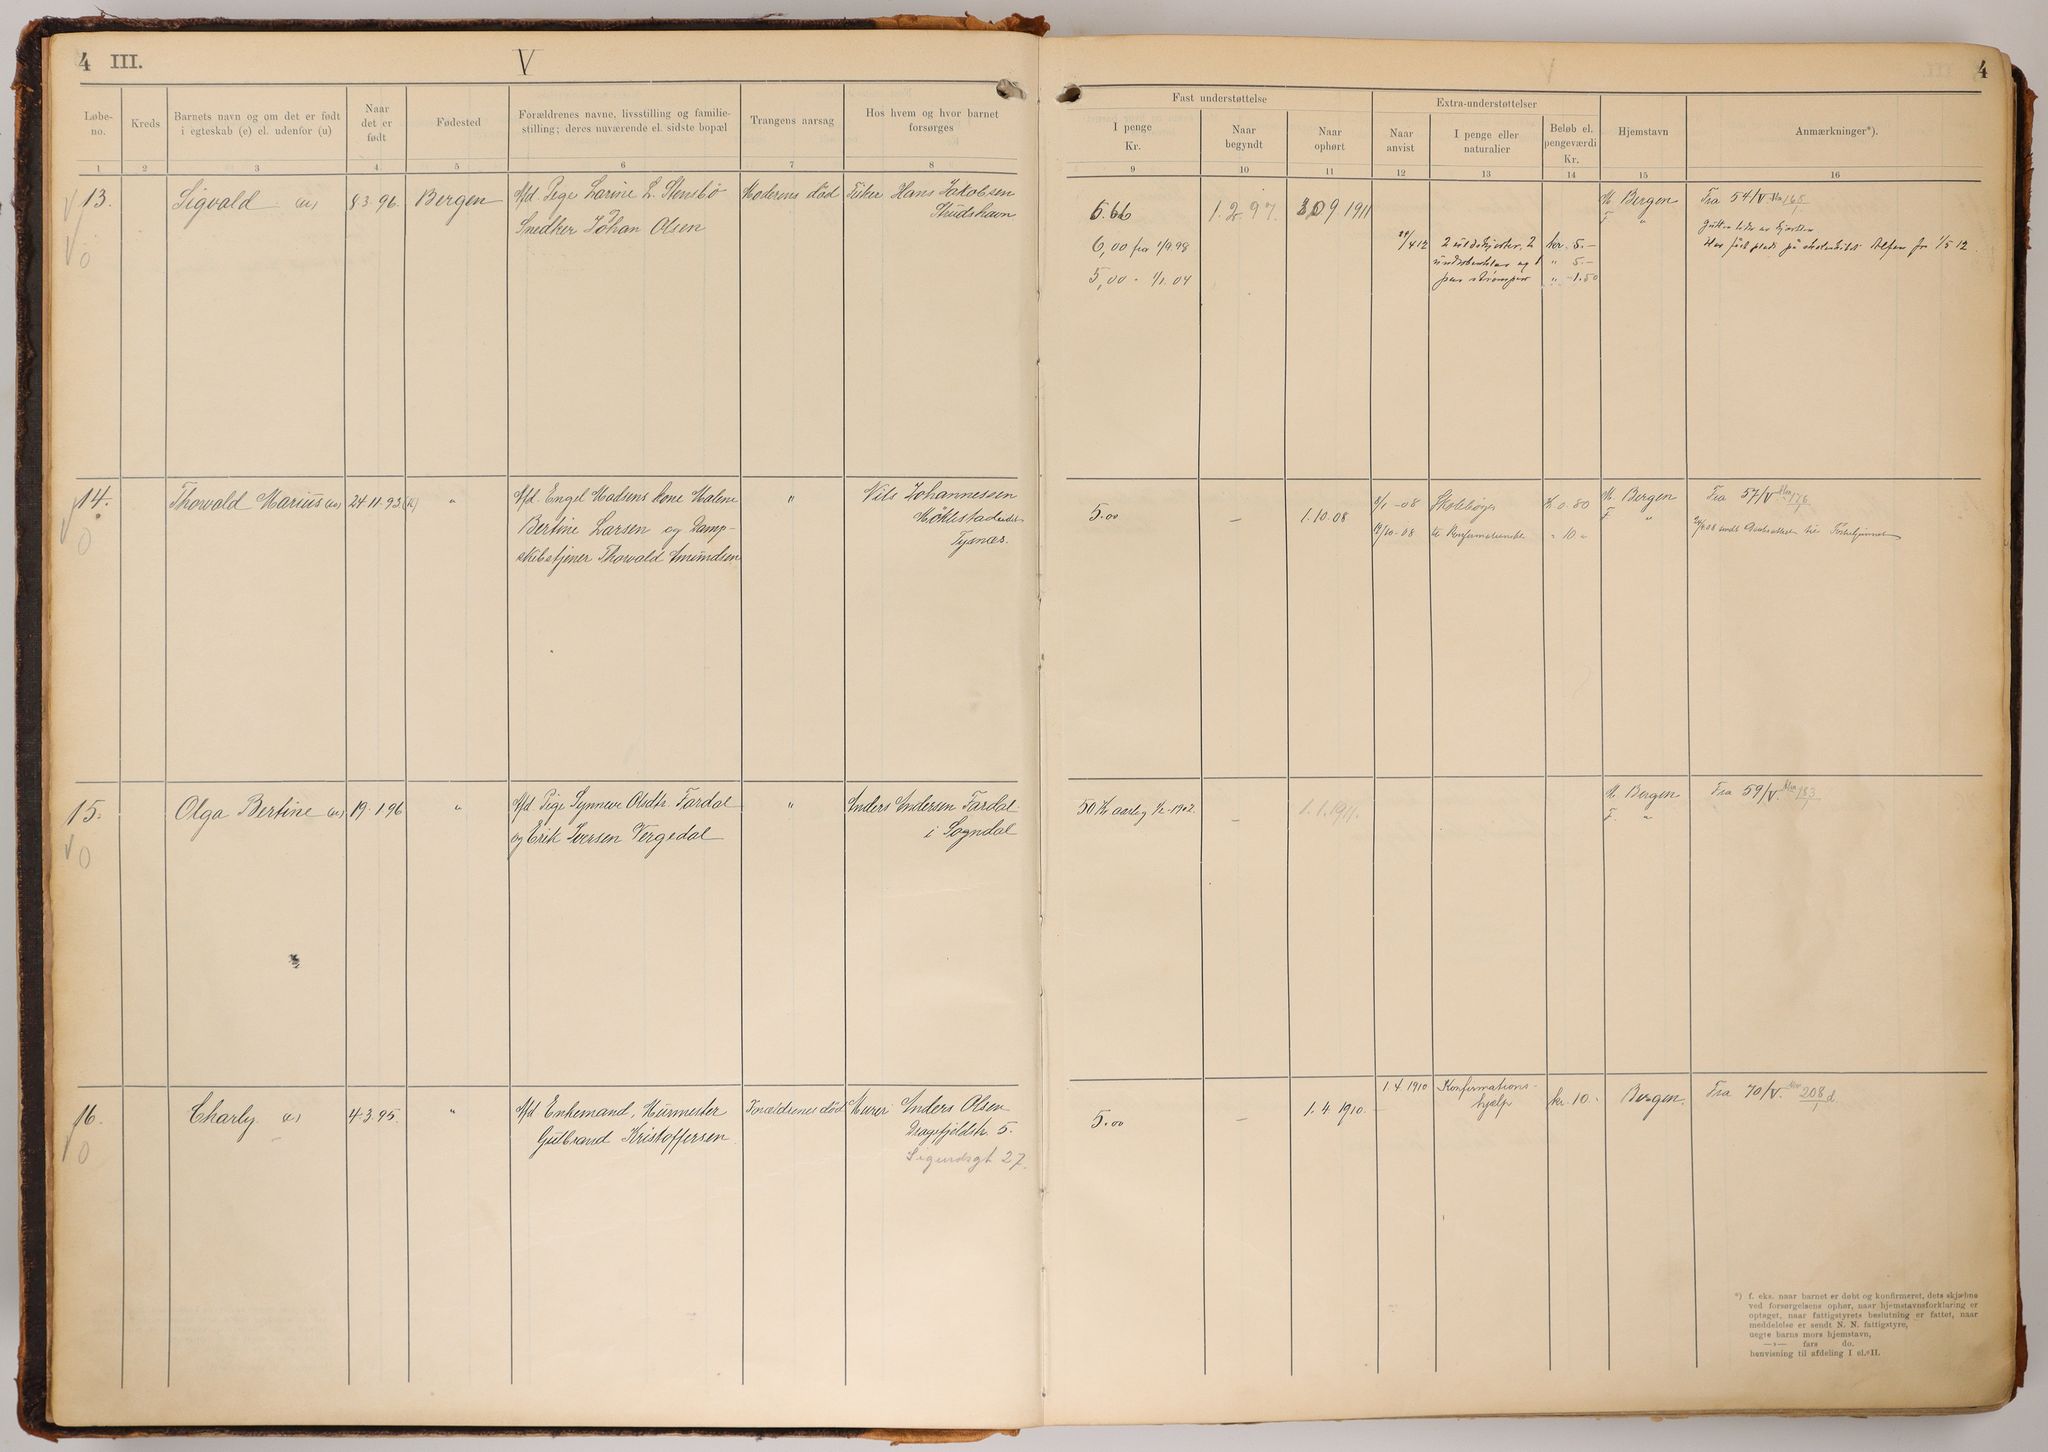 4 III.
V
4
Løbe-
no.
Kreds
Barnets navn og om det er født
i egteskab (e) el. udenfor (u)
Naar
det er
født
Fødested
Forældrenes navne, livsstilling og familie-
stilling; deres nuværende el. sidste bopæl
Trangens aarsag
Hos hvem og hvor barnet
forsørges
Fast understøttelse
I penge
Kr.
Naar
begyndt
Naar
ophørt
Extra-understøttelser
Naar
anvist
I penge eller
naturalier
Beløb el.
pengeværdi
Kr.
Hjemstavn
Anmærkninger*).
1 2 3 4 5 6 7 8 9 10 11 12 13 14 15 16
13. Sigvald (u) 8.3.96. Bergen Afd. Pige Larine L. Stensbø Moderens död Fisker Hans Jakobsen
Snedker Johan Olsen Strudshavn
5.66 1.2.97. 30.9.1911 M. Bergen Fra 54/V. 165
F "
6,00 fra 1/9.98 /4 12 2 kr. 5.-
og 1 " 5.-
5,00 - 1/1.04 par strømper " -1.50
Har fåt plads på Alfen fra 1/5 12
14. Thorvald Marius (u) 24.11.93 " Afd. Engel Madsens kone Malene " Nils Johannessen
Bertine Larsen og Damp-
skibstjener Thorvald Amundsen Tysnæs.
5.00 - 1.10.08 /1-08 Skolebøger K. 0.80 M. Bergen Fra 57/V 176
F. "
/10-08 til Konfirmation " 10 "
15. Olga Bertine (u) 19.1.96 " Afd. Pige Synneve Olsdtr. Fardal " Anders Andersen Fardal
og Erik Iversen Vergedal i Sogndal
50 Kr aarlig 1/2-1902. - 1.1.1911. M. Bergen Fra 59/V. 183
F. "
16. Charly (e) 4.3.95. " Afd Enkemand, Murmester Forældrenes död Murer Anders Olsen
Gulbrand Kristoffersen Dragefjeldstr. 5.
Sigurdsgt 27.
5.00 - 1.4.1910. 1.4.1910 Konfirmations-
hjælp kr. 10.- Bergen. Fra 70/V. 208
*) f. eks. naar barnet er døbt og konfirmeret, dets skjæbne
ved forsørgelsens ophør, naar hjemstavnsforklaring er
optaget, naar fattigstyrets beslutning er fattet, naar
meddelelse er sendt N. N. fattigstyre,
uegte barns mors hjemstavn,
—»— fars do.
henvisning til afdeling I el. II.